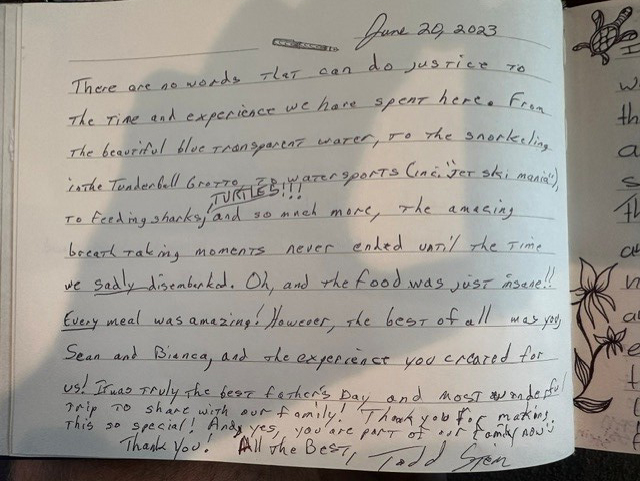 June 20, 2023
There are no words that can do justice to
the time and experience we have spent here. From
the beautiful blue transparent water, to the snorkeling
in the Tunderball Grotto, to watersports (inc. "jet ski mania"),
TURTLES!!!
to feeding sharks, and so much more, the amazing
breath taking moments never ended until the time
we sadly disembarked. Oh, and the food was just insane!!
Every meal was amazing! However, the best of all was you,
Sean and Bianca, and the experience you created for
us! It was truly the best father's Day and most wonderful
trip to share with our family! Thank you for making
this so special! And, yes, you are part of our family now!
Thank you! All the Best, Todd